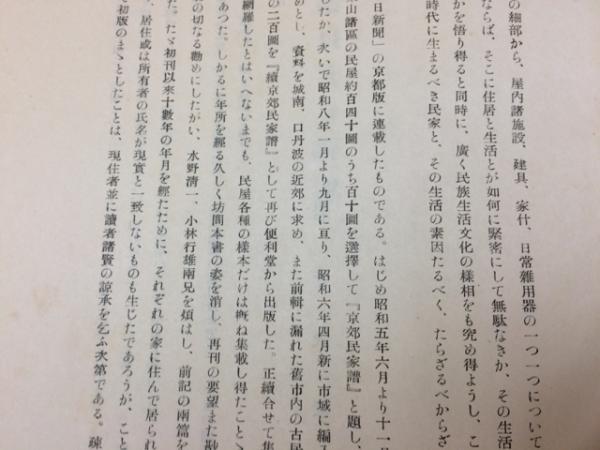 の細部から、屋内諸施設、建具、家什、日常雜用器の一つ一つについて
ならば、そこに住居と生活とが如何に緊密にして無駄なきか、その生活
かを悟り得ると同時に、廣く民族生活文化の樣相をも究め得ようし、こ
時代に生まるべき民家と、その生活の素因たるべく、たらざるべからざ
日新聞」の京都版に連載したものである。はじめ昭和五年六月より十一
山諸區の民屋約百四十圖のうち百十圖を選擇して『京郊民家譜』と題し、
したが、次いで昭和八年一月より九月に亙り、昭和六年四月新に市域に編入
めとし、資料を城南、口丹波の近郊に求め、また前輯に漏れた舊市内の古民
の二百圖を『續京郊民家譜』として再び便利堂から出版した。正續合せて集
網羅したとはいへないまでも、民屋各種の樣本だけは概ね集載し得たことゝ
あつた。しかるに年所を經る久しく坊間本書の姿を消し、再刊の要望また尠
の切なる勸めにしたがい、水野淸一、小林行雄兩兄を煩はし、前記の兩篇を
た。たゞ初刊以來十數年の年月を經たために、それぞれの家に住んで居られ
、居住或は所有者の氏名が現實と一致しないものも生じたであろうが、こと
初版のまゝとしたことは、現住者並に讀者諸賢の諒承を乞ふ次第である。疎